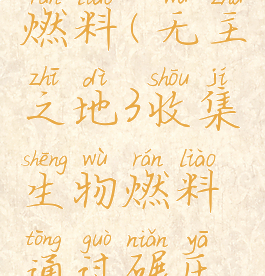 rán liào wú zhǔ
燃料(无主
zhī dì shōu jí
之地3收集
shēng wù rán liào
生物燃料
tōng guò niǎn yā
通过碾压